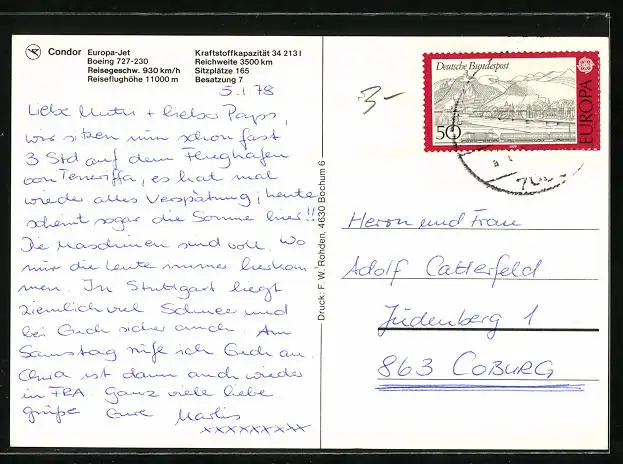 Condor Europa-Jet
Boeing 727-230
Reisegeschw. 930 km/h
Reiseflughöhe 11000 m
Kraftstoffkapazität 34 213 l
Reichweite 3500 km
Sitzplätze 165
Besatzung 7
5.1.78
Liebe Mutti + lieber Paps,
wir sitzen nun schon fast
3 Std auf dem Flughafen
von Teneriffa, es hat mal
wieder alles Verspätung; heute
scheint sogar die Sonne hier!!
Die Maschinen sind voll. Wo
nur die Leute immer herkom
men. In Stuttgart liegt
ziemlich viel Schnee und
bei Euch sicher auch. Am
Samstag rufe ich Euch an.
ist dann auch wieder
in FRA. Ganz viele liebe
Grüße Eure Marlis
xxxxxxxxx
Druck: F. W. Rohden, 4630 Bochum 6
3-
Deutsche Bundespost
50
EUROPA
700
Herrn und Frau
Adolf Catterfeld
Judenberg 1
863 COBURG